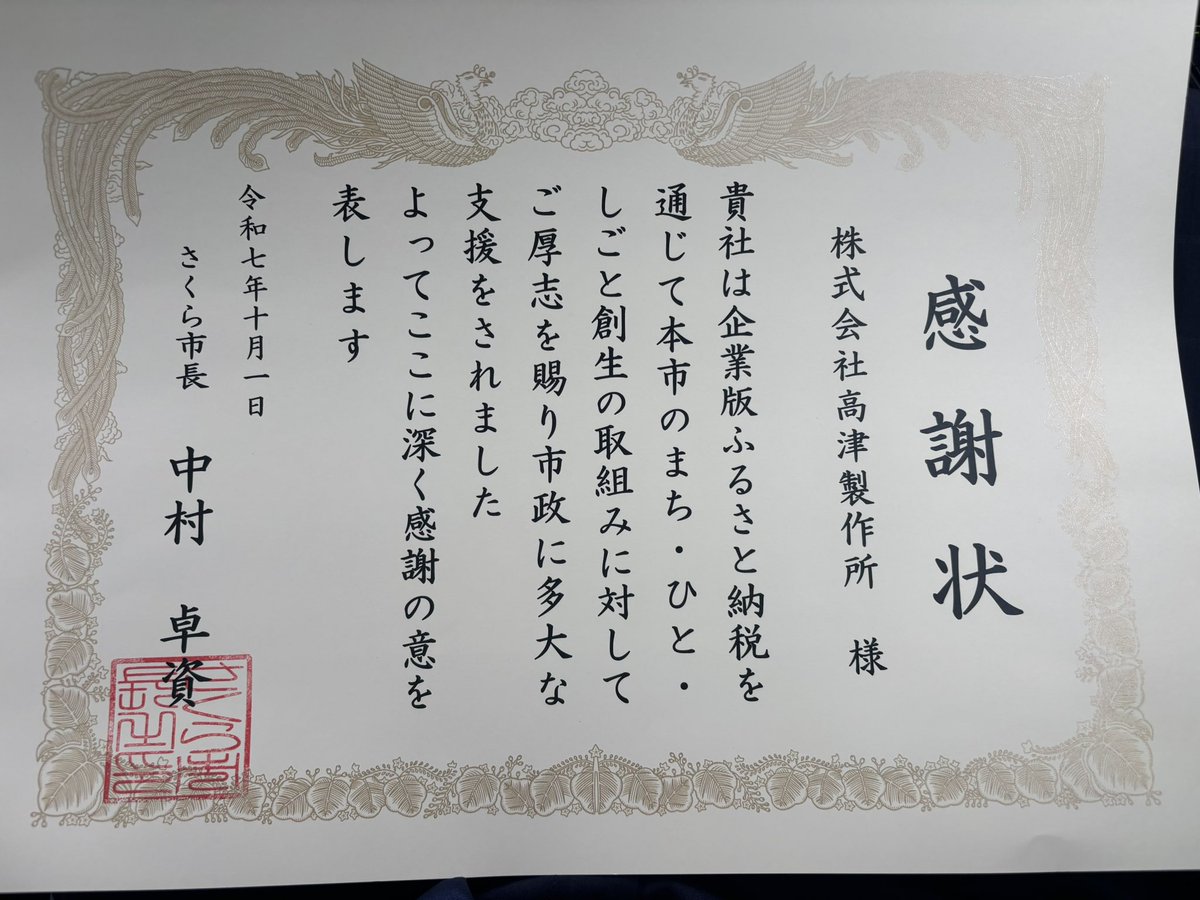 感謝状
株式会社高津製作所 様
貴社は企業版ふるさと納税を
通じて本市のまち・ひと・
しごと創生の取組みに対して
ご厚志を賜り市政に多大な
支援をされました
よってここに深く感謝の意を
表します
令和七年十月一日
さくら市長 中村 卓資
さくら市
長之印